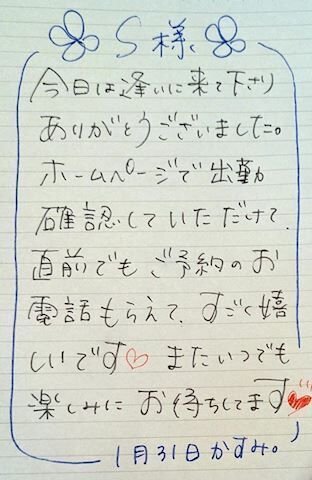 S様、
今日は逢いに来て下さり
ありがとうございました。
ホームページで出勤
確認していただけて、
直前でもご予約のお
電話もらえて、すごく嬉
しいです♡ またいつでも
楽しみにお待ちしてます♥
1月31日かすみ。